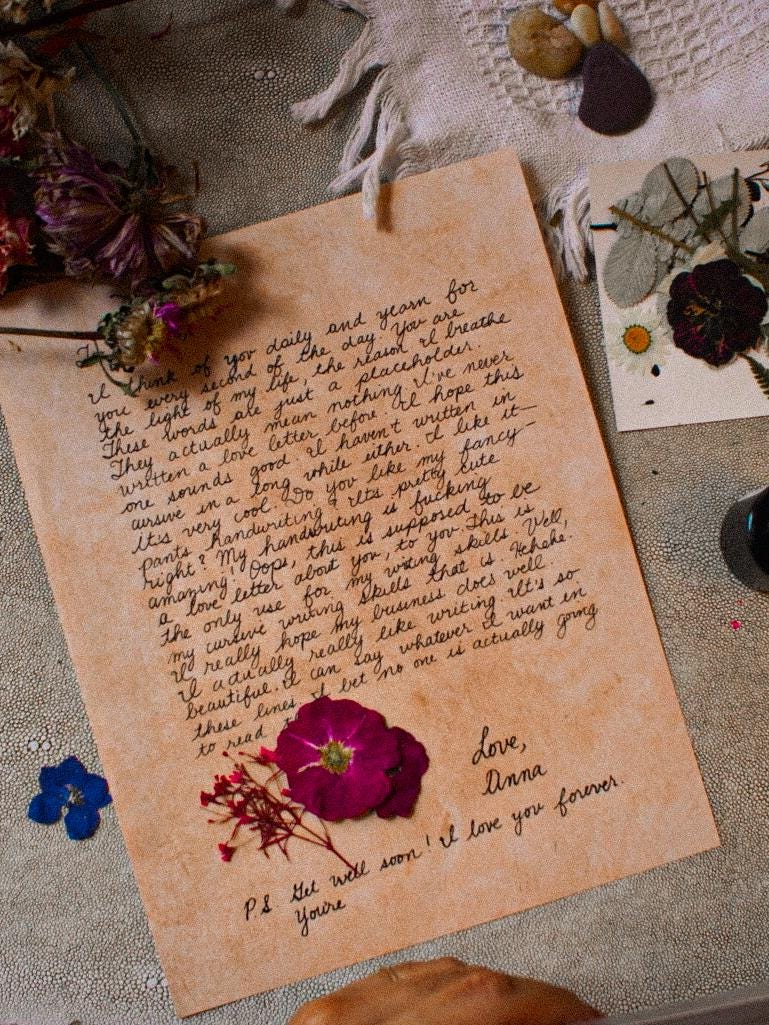 I think of you daily and yearn for
you every second of the day. You are
the light of my life, the reason I breathe
These words are just a placeholder.
They actually mean nothing. I've never
written a love letter before. I hope this
one sounds good. I haven't written in
cursive in a long while either. I like it—
It's very cool. Do you like my fancy-
pants handwriting? It's pretty cute
right? My handwriting is fucking
amazing! Oops, this is supposed to be
a love letter about you, to you. This is
the only use for my writing skills. Well,
my cursive writing skills that is. Hehehe.
I really hope my business does well.
I actually really like writing. It's so
beautiful. I can say whatever I want in
these lines. I bet no one is actually going
to read
Love,
Anna
P.S Get well soon! I love you forever.
You're